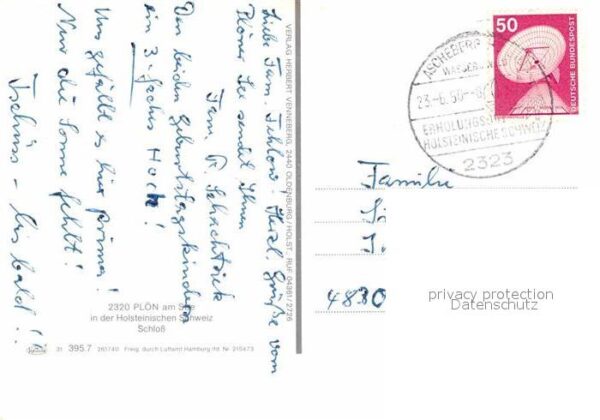 Liebe Fam. Teklow! Herzl. Grüße vom
Plöner See sendet Ihnen
Fam. P. Schachtsiek
Den beiden Geburtstagskindern
ein 3-faches Hoch!
Uns gefällt es hier prima!
Nur die Sonne fehlt!
Tschüss - bis bald!!
VERLAG HERBERT VENNEBERG, 2440 OLDENBURG/HOLST · RUF 04361/2726
2320 PLÖN am See
in der Holsteinischen Schweiz
Schloß
31 395.7 260740 Freig. durch Luftamt Hamburg Nr. 215473
50
DEUTSCHE BUNDESPOST
ASCHEBERG
23.-6.80
ERHOLUNGS
HOLSTEINISCHE SCHWEIZ
2323
Familie
4830
privacy protection
Datenschutz